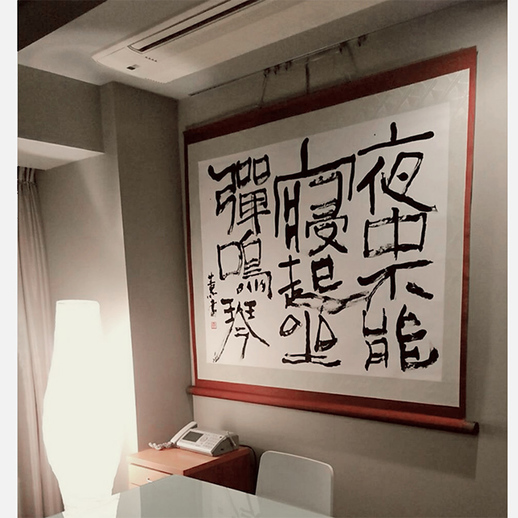 夜中不能
寝起坐
彈鳴琴